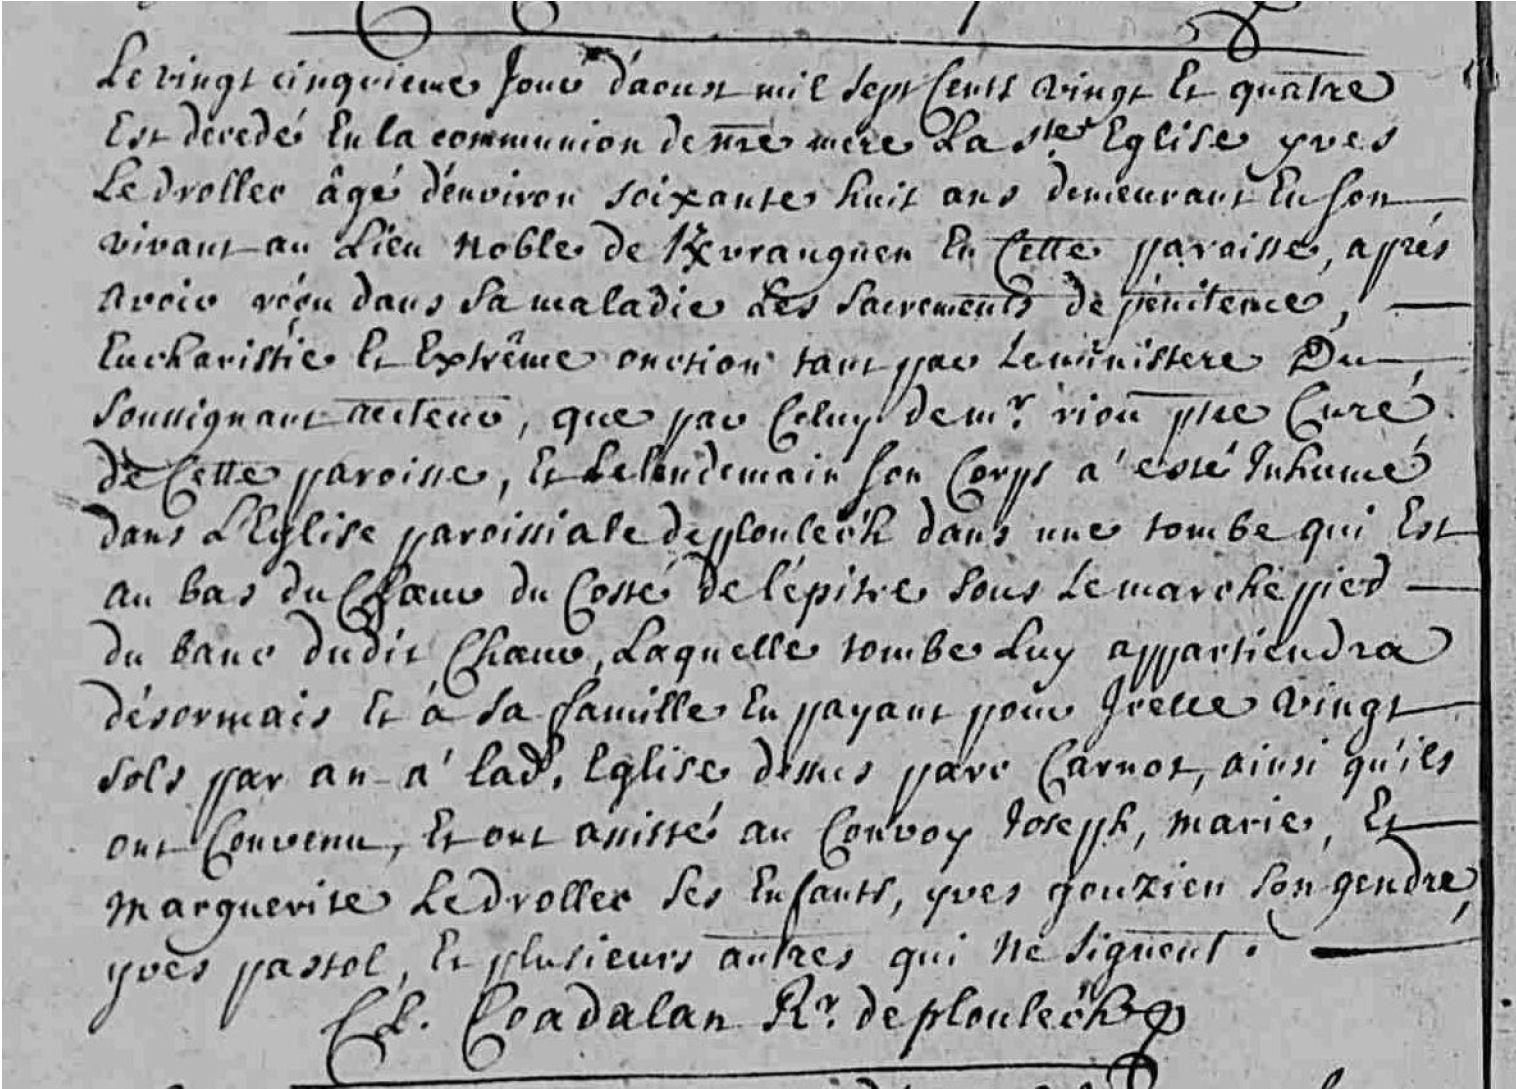 Le vingt cinquieme Jour d'aoust mil sept Cents vingt Et quatre
Est decedé En la communion de nre mere La ste Eglise yves
Le drollec âgé d'environ soixante huit ans demeurant En son
vivant au Lieu noble de Kvranguen En Cette paroisse, aprés
avoir réçu dans sa maladie Les sacrements de pénitence,
Eucharistie Et Extrême onction tant par Le ministere Du
soussignant recteur, que par Celuy de mr. riou ptre Curé
de Cette paroisse, Et Le lendemain son Corps a' esté Inhumé
dans L'Eglise paroissiale de ploulec'h dans une tombe qui Est
au bas du Chœur du Costé de l'épitre sous Le marchepied
du banc dudit Chœur, Laquelle tombe Luy appartiendra
désormais Et à sa famille En payant pour Icelle vingt
sols par an a' lad. Eglise dessus parc Carnot, ainsi qu'ils
ont Convenu, Et ont assisté au Convoy Joseph, marie, Et
marguerite Le drollec ses Enfants, yves gouzien son gendre,
yves pastol, Et plusieurs autres qui ne signent.
Coadalan Rr. de ploulec'h